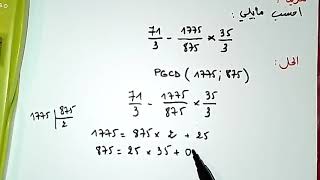 احسب مايلي :
71/3 - 1775/875 × 35/3
الحل :
PGCD (1775 ; 875)
71/3 - 1775/875 × 35/3
1775 | 875
2
1775 = 875 × 2 + 25
875 = 25 × 35 + 0